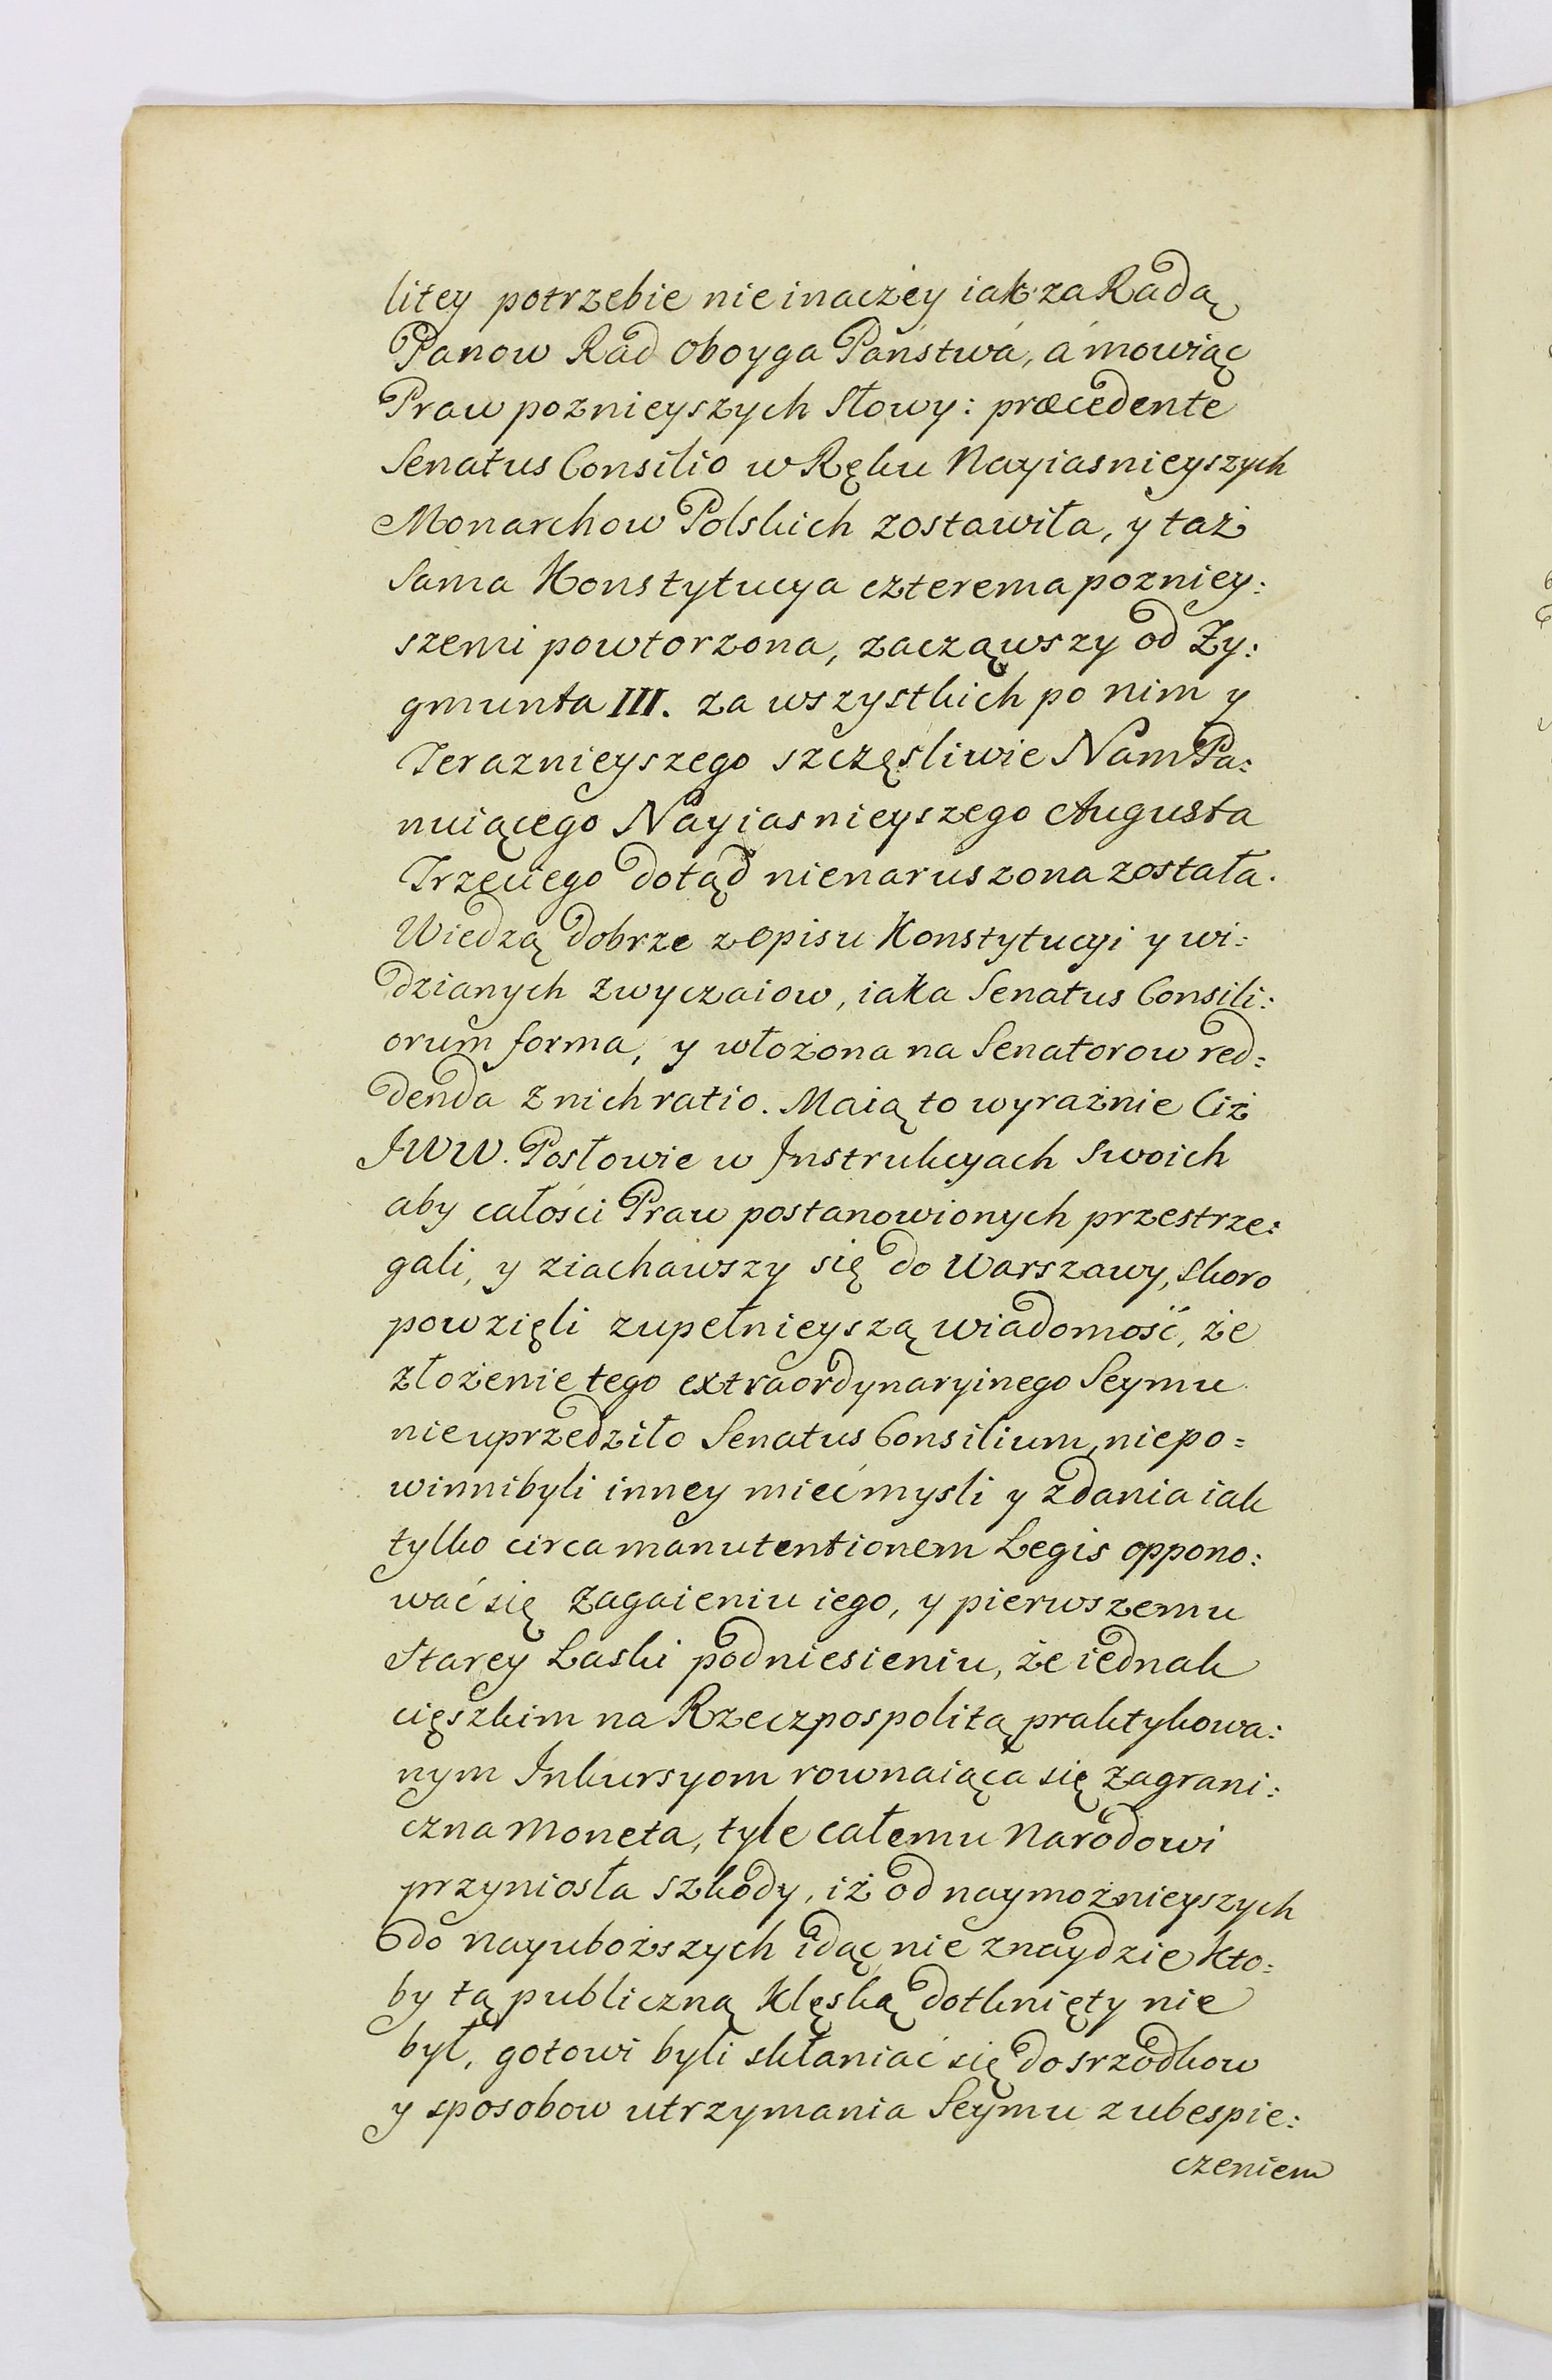 litey potrzebie nie inaczey iak za Radą
Panow Rad oboyga Państwá, á mowiąc
Praw poznieyszych Słowy: præcedente
Senatus Consilio w Ręku Nayiasnieyszych
Monarchow Polskich zostawiła, y taż
Sama Konstytucya czterema pozniey:
szemi powtorzona, zacząwszy od Zy:
gmunta III. za wszystkich po nim y
Teraznieyszego szczęsliwie Nam Pa:
nuiącego Nayiasnieyszego Augusta
Trzeciego dotąd nienaruszona została.
Wiedzą dobrze z opisu Konstytucyi y wi:
dzianych zwyczaiow, iaka Senatus Consili:
orum forma, y włożona na Senatorow red:
denda z nich ratio. Maią to wyraźnie Ciż
JWW. Posłowie w Instrukcyach swoich
aby całości Praw postanowionych przestrze:
gali, y ziachawszy się do Warszawy, skoro
powzięli zupełnieyszą wiadomość, że
złożenie tego extraordynaryinego Seymu
nieuprzedziło Senatus Consilium, niepo=
winni byli inney mieć mysli y zdania iak
tylko circa manutentionem Legis oppono:
wać się zagaieniu iego, y pierwszemu
Starey Laski podniesieniu, że iednak
cięszkim na Rzeczpospolitą praktykowa:
nym Inkursyom rownaiąca się zagrani:
czna moneta, tyle całemu Narodowi
przyniosła szkody, iż od naymożnieyszych
do nayuboższych idąc, nie znaydzie kto:
by tą publiczną klęską dotknięty nie
był, gotowi byli skłaniać się do srzodkow
y sposobow utrzymania Seymu z ubespie:
czeniem